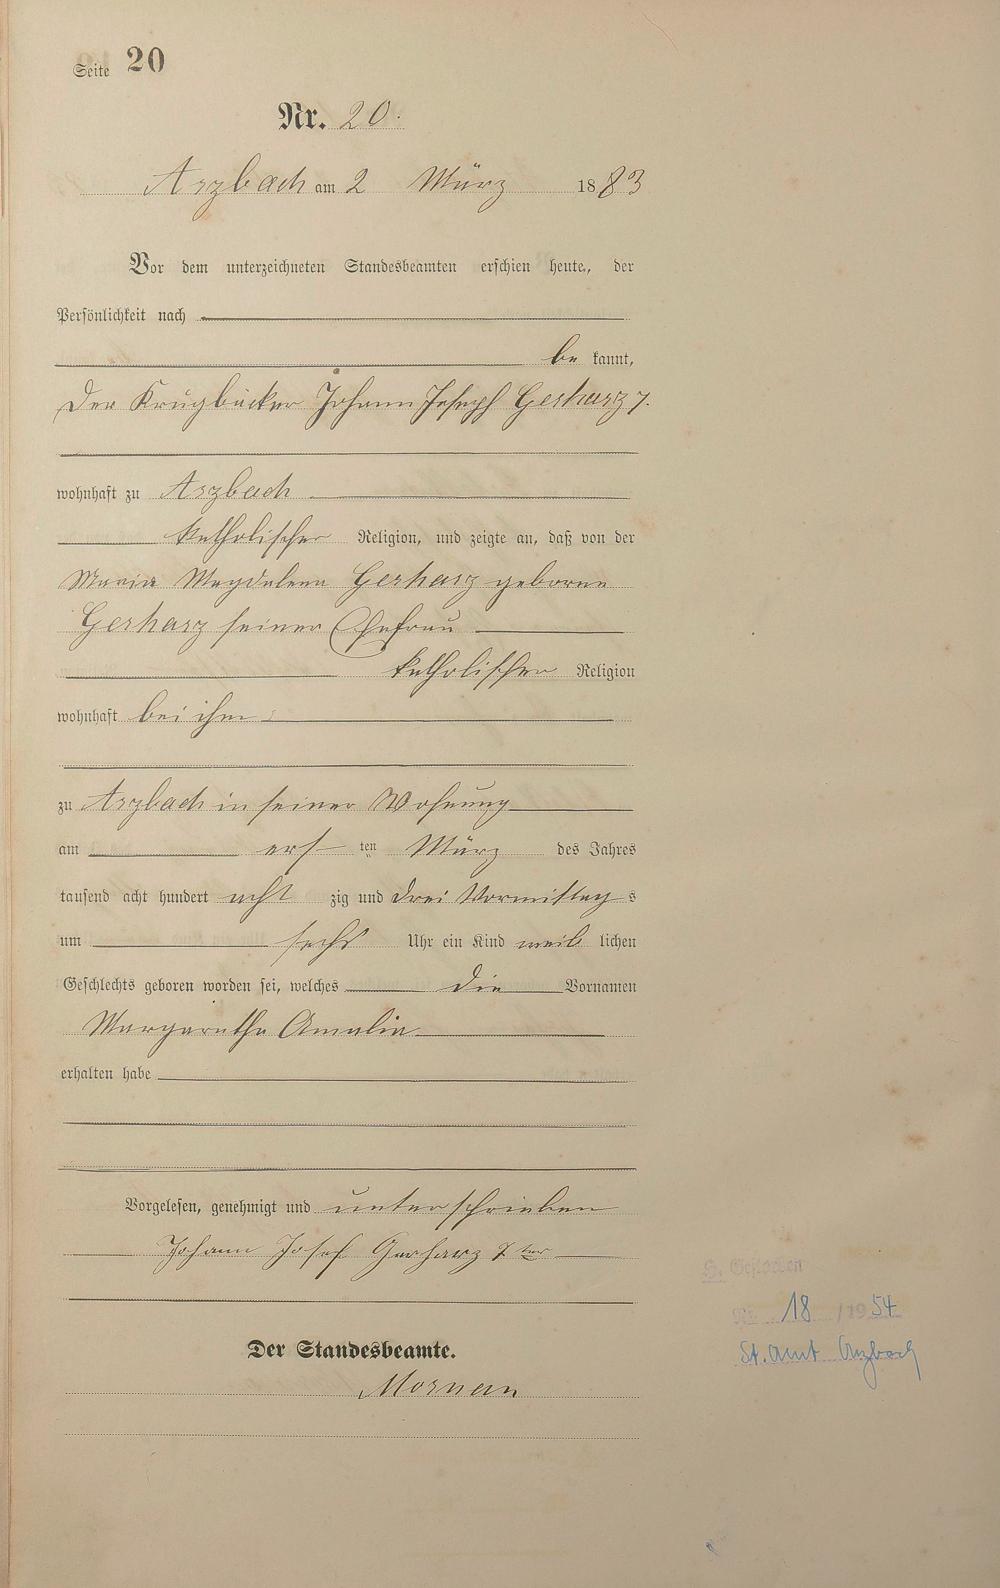 Seite 20
Nr. 20.
Arzbach am 2 März 1883
Vor dem unterzeichneten Standesbeamten erschien heute, der
Persönlichkeit nach
be kannt,
Der Krugbäcker Johann Joseph Gerharz 7.
wohnhaft zu Arzbach
katholischer Religion, und zeigte an, daß von der
Maria Magdalena Gerharz geborne
Gerharz seiner Ehefrau
katholischer Religion
wohnhaft bei ihm
zu Arzbach in seiner Wohnung
am erst ten März des Jahres
tausend acht hundert acht zig und drei Vormittag s
um sechs Uhr ein Kind weib lichen
Geschlechts geboren worden sei, welches die Vornamen
Margaretha Amalia
erhalten habe
Vorgelesen, genehmigt und unterschrieben
Johann Josef Gerharz 7ter
Der Standesbeamte.
H. Gestorben
Nr. 18 / 1954
St. Amt Arzbach